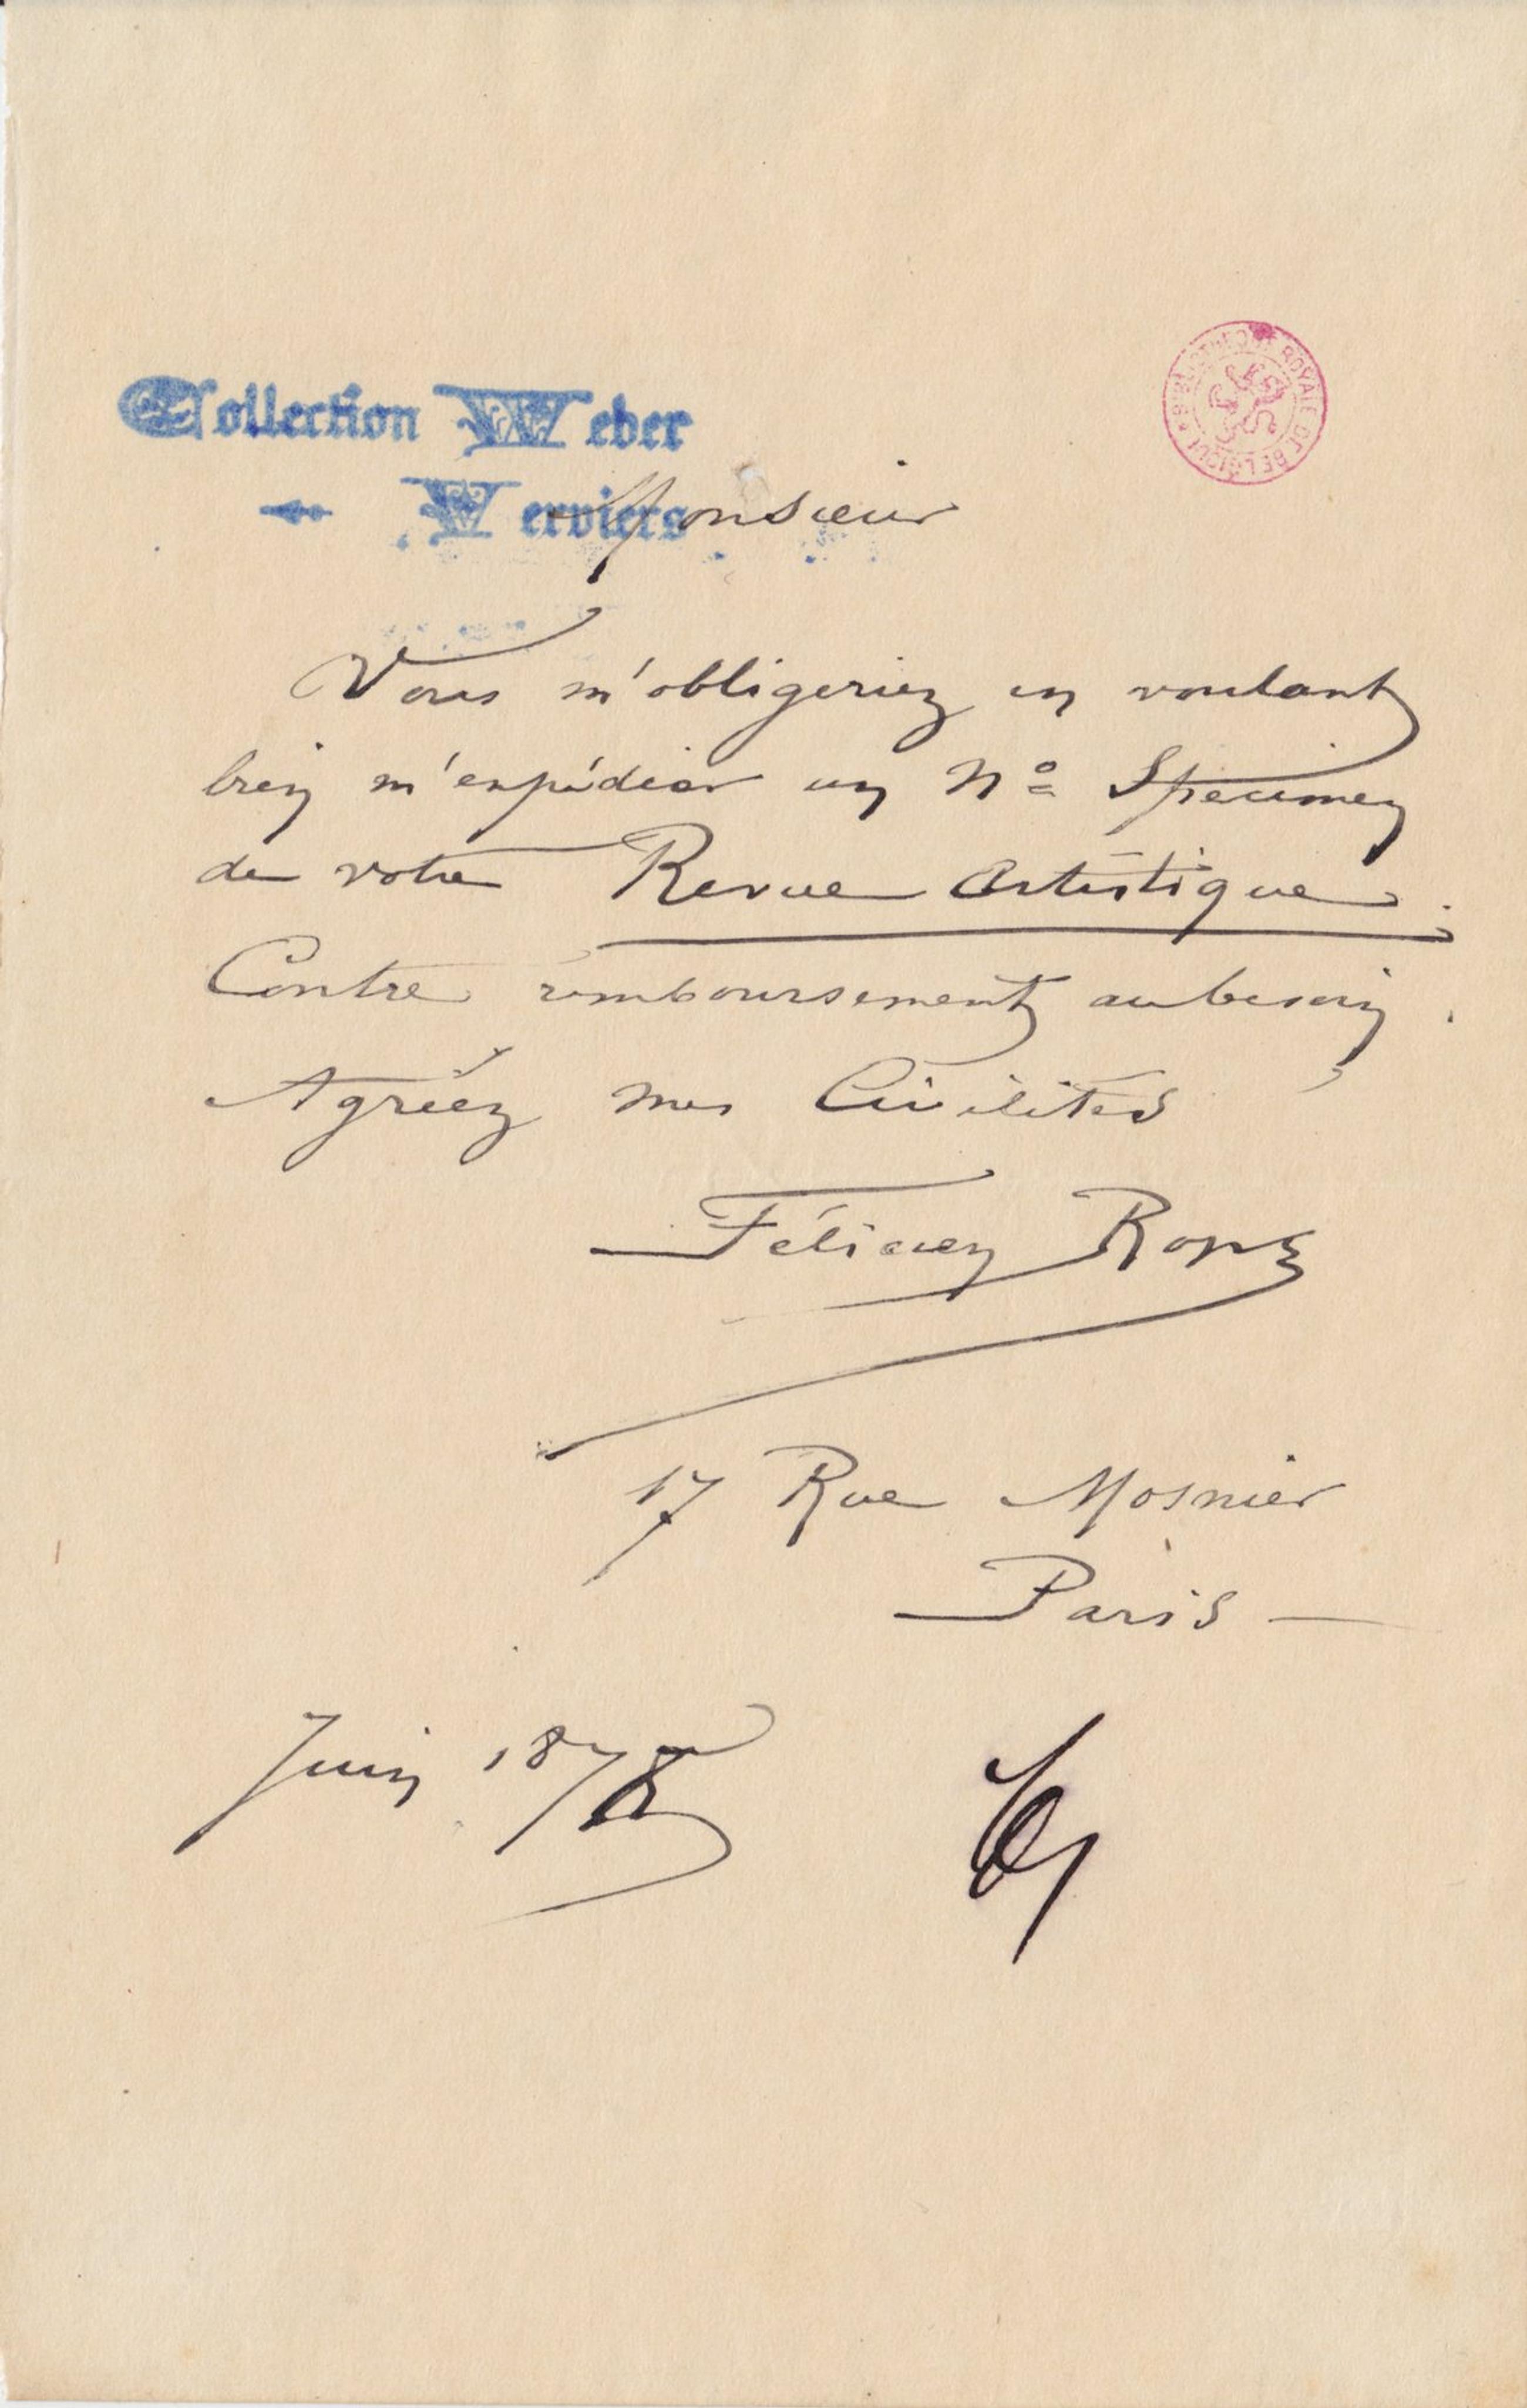 Collection Weber
Verviers
BIBLIOTHEQUE ROYALE DE BELGIQUE
Monsieur
Vous m'obligeriez en voulant
bien m'expédier un No Specimen
de votre Revue Artistique.
Contre remboursement au besoin.
Agréez mes Civilités
Félicien Rops
17 Rue Mosnier
Paris —
Juin 1878